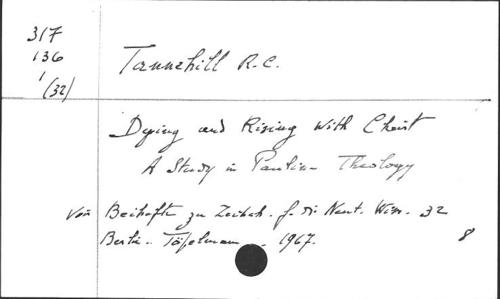 317
136
1
(32)
Tannehill R.C.
Dying and Rising With Christ
A Study in Pauline Theology
Von Beihefte zu Zeitsch. f. die Neut. Wiss. 32
Berlin - Töpelmann - 1967. 8